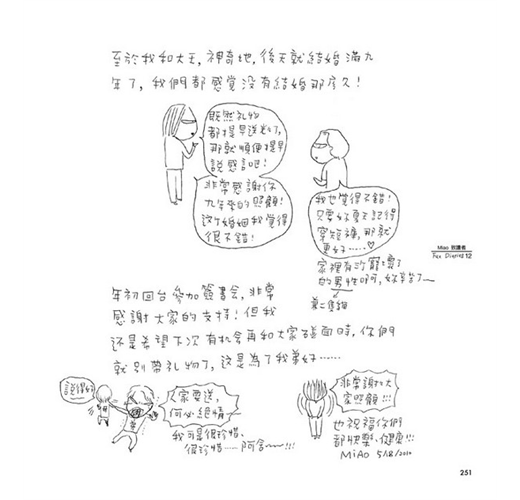 至於我和大王,神奇地,後天就結婚滿九
年了,我們都感覺沒有結婚那麼久!
既然礼物
都提早送光了,
那就順便提早
說感言吧!
非常感謝你
九年來的照顧!
这个婚姻我覺得
很不錯!
我也覺得不錯!
只要好
穿短褲,那就
更好……♥
家裡有
的男性啊,好辛苦了~
Miao 致讀者
Fax Diaries 12
年初回台參加簽書會,非常
感謝大家的支持!但我
还是希望下次有机会再和大家碰面時,你們
就別帶礼物了,这是為了我兼好……
說得好
人家要送,
何必絕情
我可是很珍惜、
很珍惜……阿舍~!!!
非常謝謝大
家照顧!!!
也祝福你們
都快樂、健康!!!
MiAo 5/18/2010
251